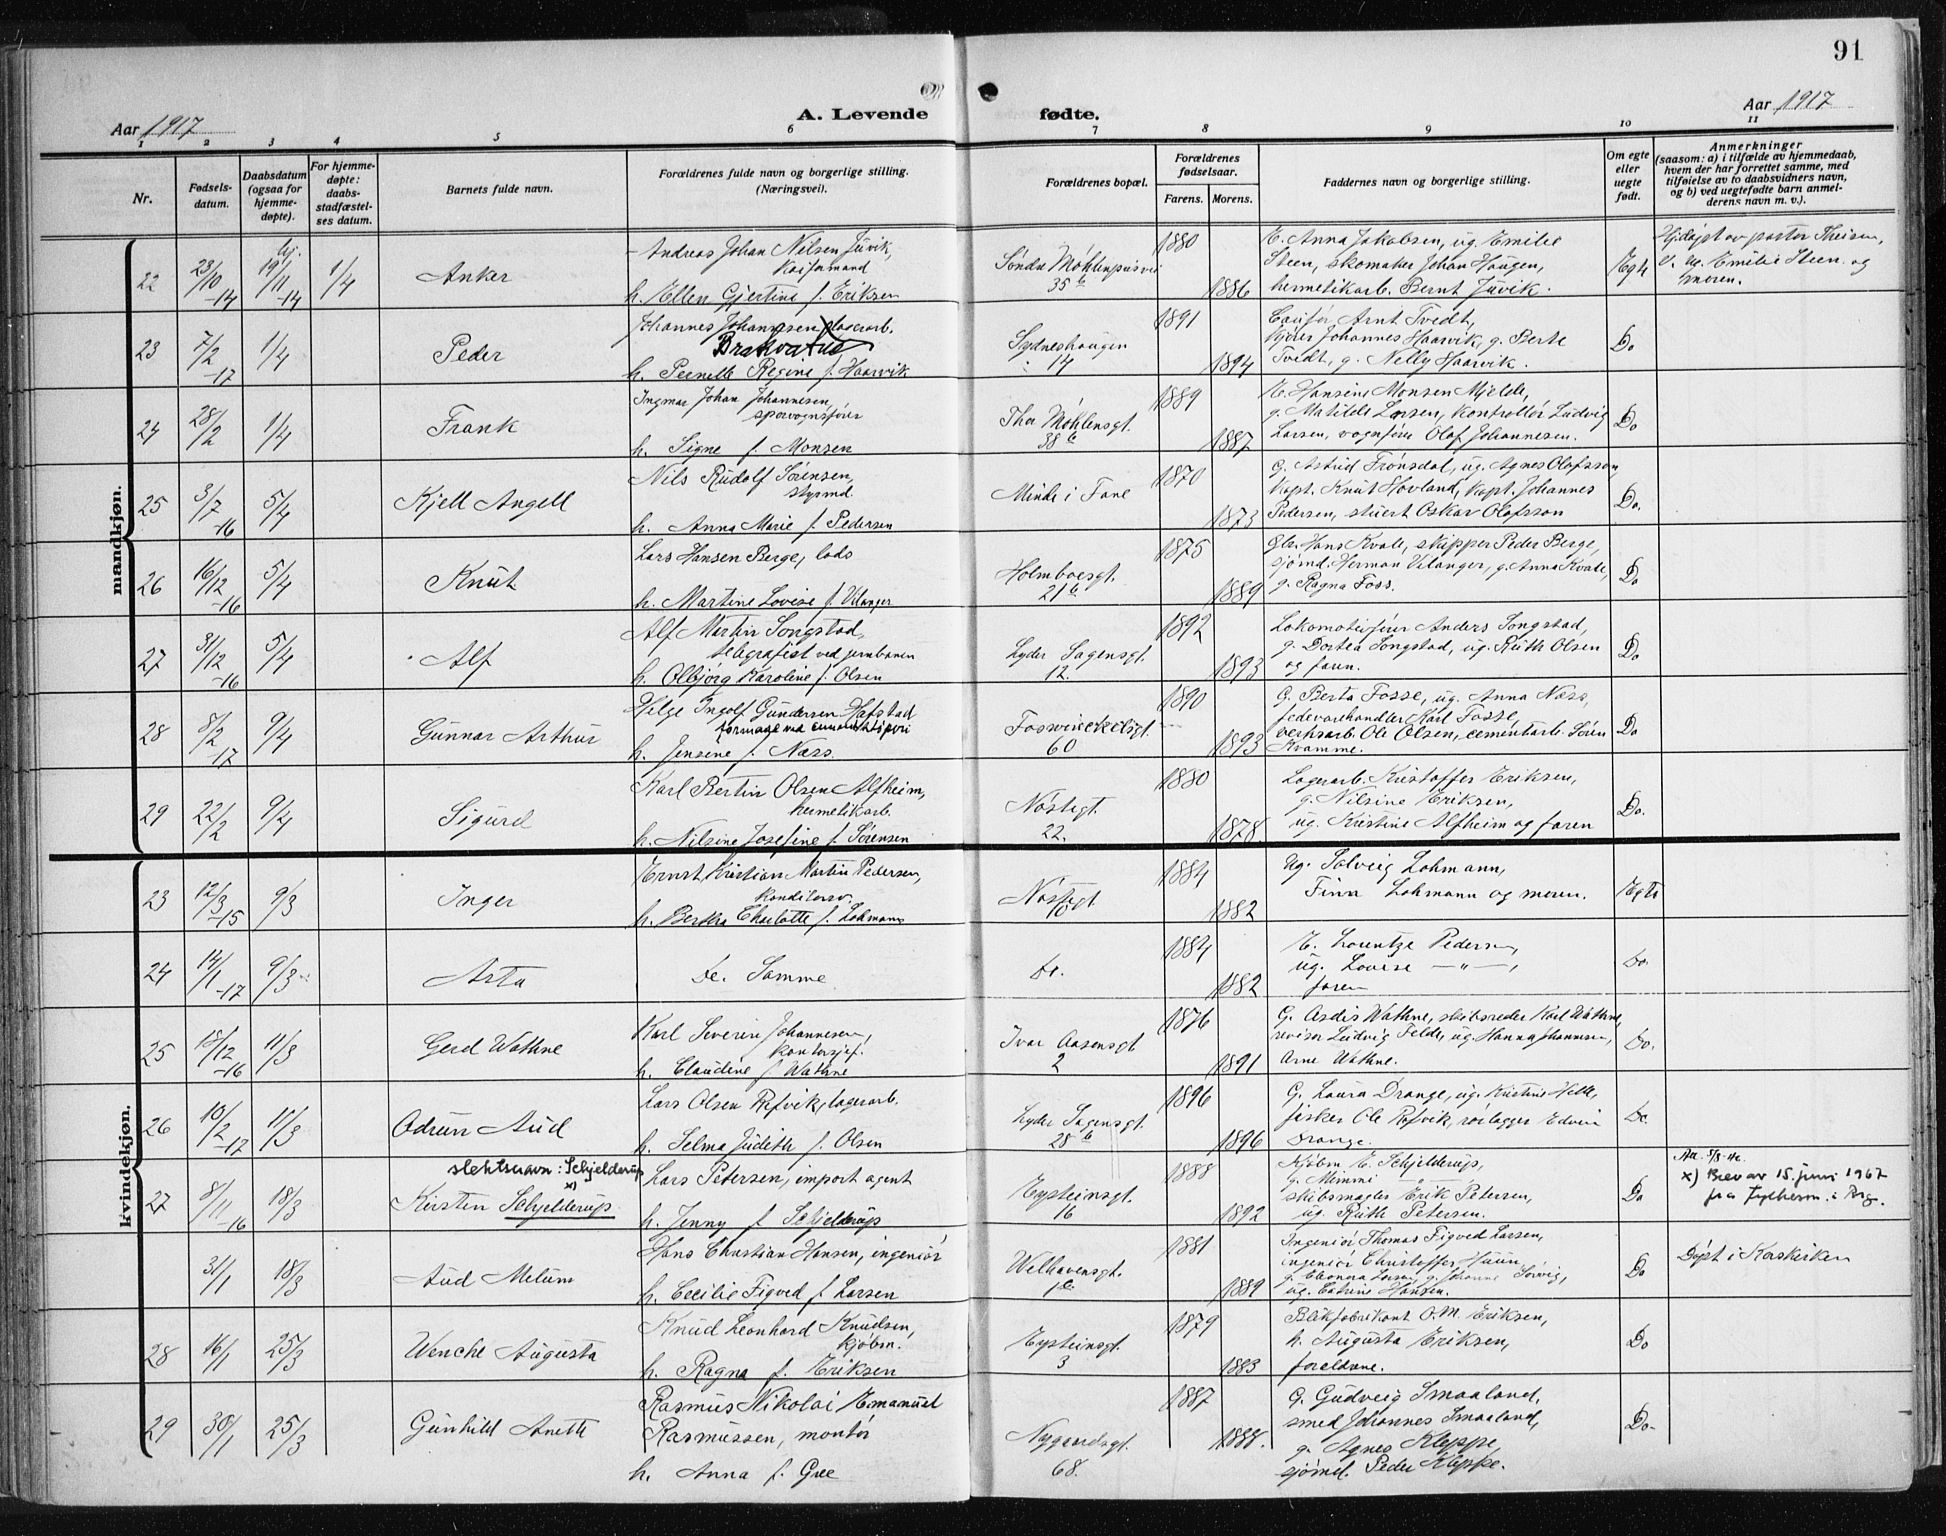 91
Aar 1917
A. Levende
fødte.
Aar 1917
1 2 3 4 5 6 7 8 9 10 11
Nr.
Fødsels-
datum.
Daabsdatum
(ogsaa for
hjemme-
døpte).
For hjemme-
døpte:
daabs-
stadfæstel-
ses datum.
Barnets fulde navn.
Forældrenes fulde navn og borgerlige stilling.
(Næringsvei).
Forældrenes bopæl.
Forældrenes
fødselsaar.
Farens. Morens.
Faddernes navn og borgerlige stilling.
Om egte
eller
uegte
født.
Anmerkninger
(saasom: a) i tilfælde av hjemmedaab,
hvem der har forrettet samme, med
tilføielse av to daabsvidners navn,
og b) ved uegtefødte barn anmel-
derens navn m. v.).
mandkjøn.
22 23/10-14 hj. 19/11-14 1/4 Anker
Andreas Johan Nilsen Juvik,
h. Ellen Gjertine f. Eriksen
35 b
1880 1886
E. Anna Jakobsen, ug. Emilie
Steen, skomaker Johan Haugen,
hermetikarb. Bernt Juvik.
Egte
Hjdøpt av pastor Theisen,
v. ug. Emilie Steen og
moren.
23 7/2-17 1/4 Peder
Johannes Johannesen, lagerarb.
h. Pernille Regine f. Haarvik
Sydneshaugen
14
1891 1894
Arnt Tvedt,
Johannes Haarvik, g. Berte
Tvedt, g. Nelly Haarvik.
Do
24 28/2 1/4 Frank
Ingmar Johan Johannesen,
sporvognsfører
h. Signe f. Monsen
Thor Møhlensgt.
38 b
1889 1887
E. Hansine Monsen Mjelde,
g. Matilde Larsen, kontrollør Ludvig
Larsen, vognfører Olaf Johannesen.
Do
25 3/7-16 5/4 Kjell Angell
Nils Rudolf Sørensen,
styrmd.
h. Anna Marie f. Pedersen
Minde i Fane
1870 1873
G. Astrid Trønsdal, ug. Agnes Olafsson,
Kapt. Knut Hovland, Kapt. Johannes
Pedersen, stuert Oskar Olafsson
Do.
26 16/12-16 5/4 Knut
Lars Hansen Berge, lods
h. Martine Lovise f. Vilanger
Holmboesgt.
21 b
1875 1889
Gbr. Hans Kvale, skipper Peder Berge,
sjømd. Herman Vilanger, g. Anna Kvale,
g. Ragna Foss.
Do
27 31/12-16 5/4 Alf
Alf Martin Songstad,
telegrafist ved jernbanen
h. Olbjørg Karoline f. Olsen
Lyder Sagensgt.
12.
1892 1893
Lokomotivfører Anders Songstad,
g. Dortea Songstad, ug. Ruth Olsen
og faren.
Do
28 8/2-17 9/4 Gunnar Arthur
Helge Ingolf Gundersen Hafstad
h. Jensine f. Næss.
Fosswinckelsgt.
60
1890 1893
G. Berta Fosse, ug. Anna Næss,
fedevarehandler Karl Fosse,
verksarb. Ole Olsen, cementarb. Søren
Kvamme.
Do
29 22/2 9/4 Sigurd
Karl Bertin Olsen Alfheim,
hermetikarb.
h. Nilsine Josefine f. Sørensen
Nøstegt.
22.
1880 1878
Lagerarb. Kristoffer Eriksen,
g. Nilsine Eriksen,
ug. Kristine Alfheim og faren
Do.
kvindekjøn.
23 12/3-15 9/3 Inger
Ernst Kristian Martin Pedersen,
h. Bertha Charlotte f. Lohmann
Nøstegt.
10
1884 1882
Ug. Solveig Lohmann,
Finn Lohmann og moren.
Egte
24 14/1-17 9/3 Asta
de. Samme
do.
1884 1882
E. Lorentze Pedersen,
ug. Lovise — „ —,
faren
Do.
25 18/12-16 11/3 Gerd Wathne
Karl Severin Johannesen,
kontorsjef.
h. Claudine f. Wathne
Ivar Aasensgt.
2
1876 1891
G. Asdis Wathne, skibsreder Karl Wathne,
revisor Ludvig Felde, ug. Hanna Johannesen,
Arne Wathne.
Do.
26 10/2-17 11/3 Odrun Aud
Lars Olsen Refvik, lagerarb.
h. Selma Judith f. Olsen
Lyder Sagensgt.
28 b
1896 1896
G. Laura Drange, ug. Kristine Helle,
fisker Ole Refvik, rørlægger Edvin
Drange.
Do.
slektsnavn: Schjelderup
x)
27 8/11-16 18/3 Kirsten Schjelderup
Lars Petersen, import agent
h. Jenny f. Schjelderup
Eysteinsgt.
16
1888 1892
Kjøbm. E. Schjelderup,
g. Mimmi — „ —
skibsmægler Erik Petersen,
ug. Ruth Petersen.
Do
x) Brev av 15. juni 1967
fra fylkesm. i Brg.
31/1 18/3 Aud Melum
Hans Christian Hansen, ingeniør
h. Cecilie Figved f. Larsen
Welhavensgt.
1881 1889
Ingeniør Thomas Figved Larsen,
ingeniør Christoffer Haun,
g. Eleonna Larsen, g. Johanne Sørvig,
ug. Catrine Hansen.
Do
Døpt i Korskirken
28 16/1 25/3 Wenche Augusta
Knud Leonhard Knudsen,
kjøbm.
h. Ragna f. Eriksen
Eysteinsgt.
3
1879 1883
Blikfabrikant O. M. Eriksen,
h. Augusta Eriksen,
foreldrene.
Do
29 30/1 25/3 Gunhild Anette
Rasmus Nikolai Emanuel
Rasmussen, montør
h. Anna f. Gree
Nygaardsgt.
68.
1887 1888.
G. Gudveig Smaaland,
smed Johannes Smaaland,
g. Agnes Kleppe,
sjømd. Peder Kleppe.
Do-